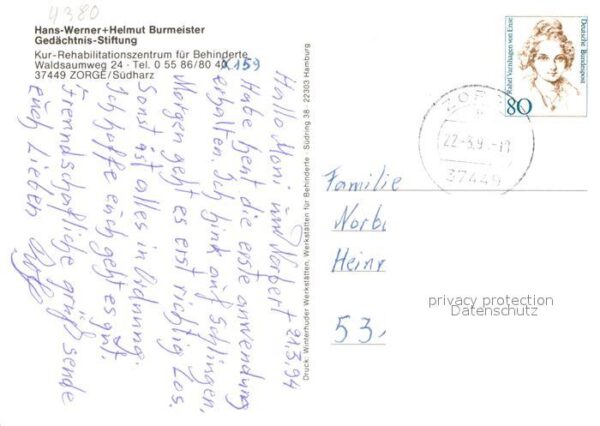 4380
Hans-Werner+Helmut Burmeister
Gedächtnis-Stiftung
Kur-Rehabilitationszentrum für Behinderte
Waldsaumweg 24 · Tel. 0 55 86/80 40 X 159
37449 ZORGE/Südharz
Hallo Moni und Norbert 21.3.94
Habe heut die erste anwendung
erhalten. Ich auf Schlingen,
Morgen geht es erst richtig Los.
Sonst ist alles in Ordnung.
Ich hoffe euch geht es gut.
Freundschaftliche grüße sende
euch Lieben
Druck: Winterhuder Werkstätten, Werkstätten für Behinderte · Südring 38 · 22303 Hamburg
Rahel Varnhagen von Ense
Deutsche Bundespost
80
ZORGE
22-3.9 -11
37449
Familie
Norb
Heinr
53.
privacy protection
Datenschutz